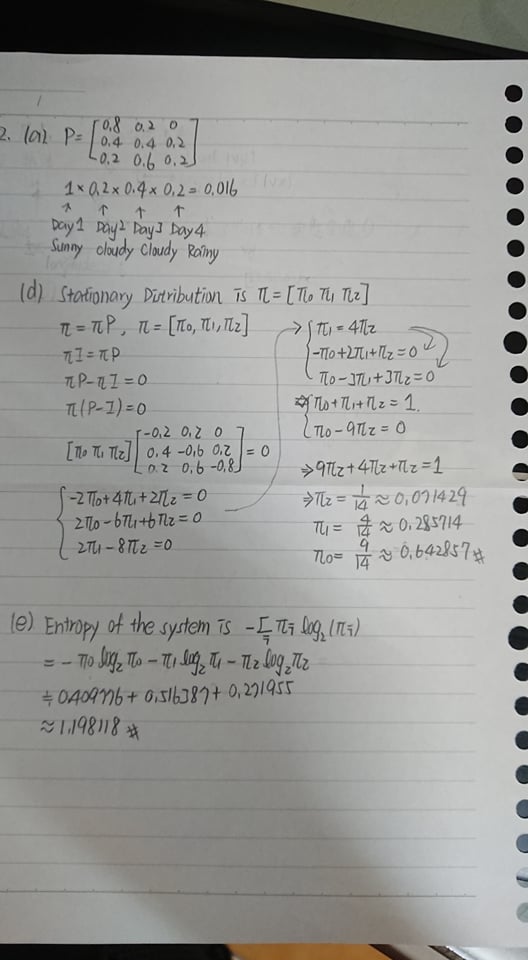 2. (a) P = [0.8 0.2 0
0.4 0.4 0.2
0.2 0.6 0.2]
1 × 0.2 × 0.4 × 0.2 = 0.016
↑ ↑ ↑ ↑
Day1 Day2 Day3 Day4
Sunny cloudy Cloudy Rainy
(d) Stationary Distribution is π = [π0 π1 π2]
π = πP, π = [π0, π1, π2]
πI = πP
πP - πI = 0
π(P-I) = 0
[π0 π1 π2] [-0.2 0.2 0
0.4 -0.6 0.2
0.2 0.6 -0.8] = 0
{ -2π0+4π1+2π2 = 0
2π0-6π1+6π2 = 0
2π1-8π2 = 0
→ { π1 = 4π2
-π0+2π1+π2 = 0
π0-3π1+3π2 = 0
⇒ { π0+π1+π2 = 1.
π0-9π2 = 0
⇒ 9π2+4π2+π2 = 1
⇒ π2 = 1/14 ≈ 0.071429
π1 = 4/14 ≈ 0.285714
π0 = 9/14 ≈ 0.642857 #
(e) Entropy of the system is -Σi πi log2(πi)
= -π0 log2 π0 - π1 log2 π1 - π2 log2 π2
≒ 0.409776 + 0.516387 + 0.271955
≈ 1.198118 #